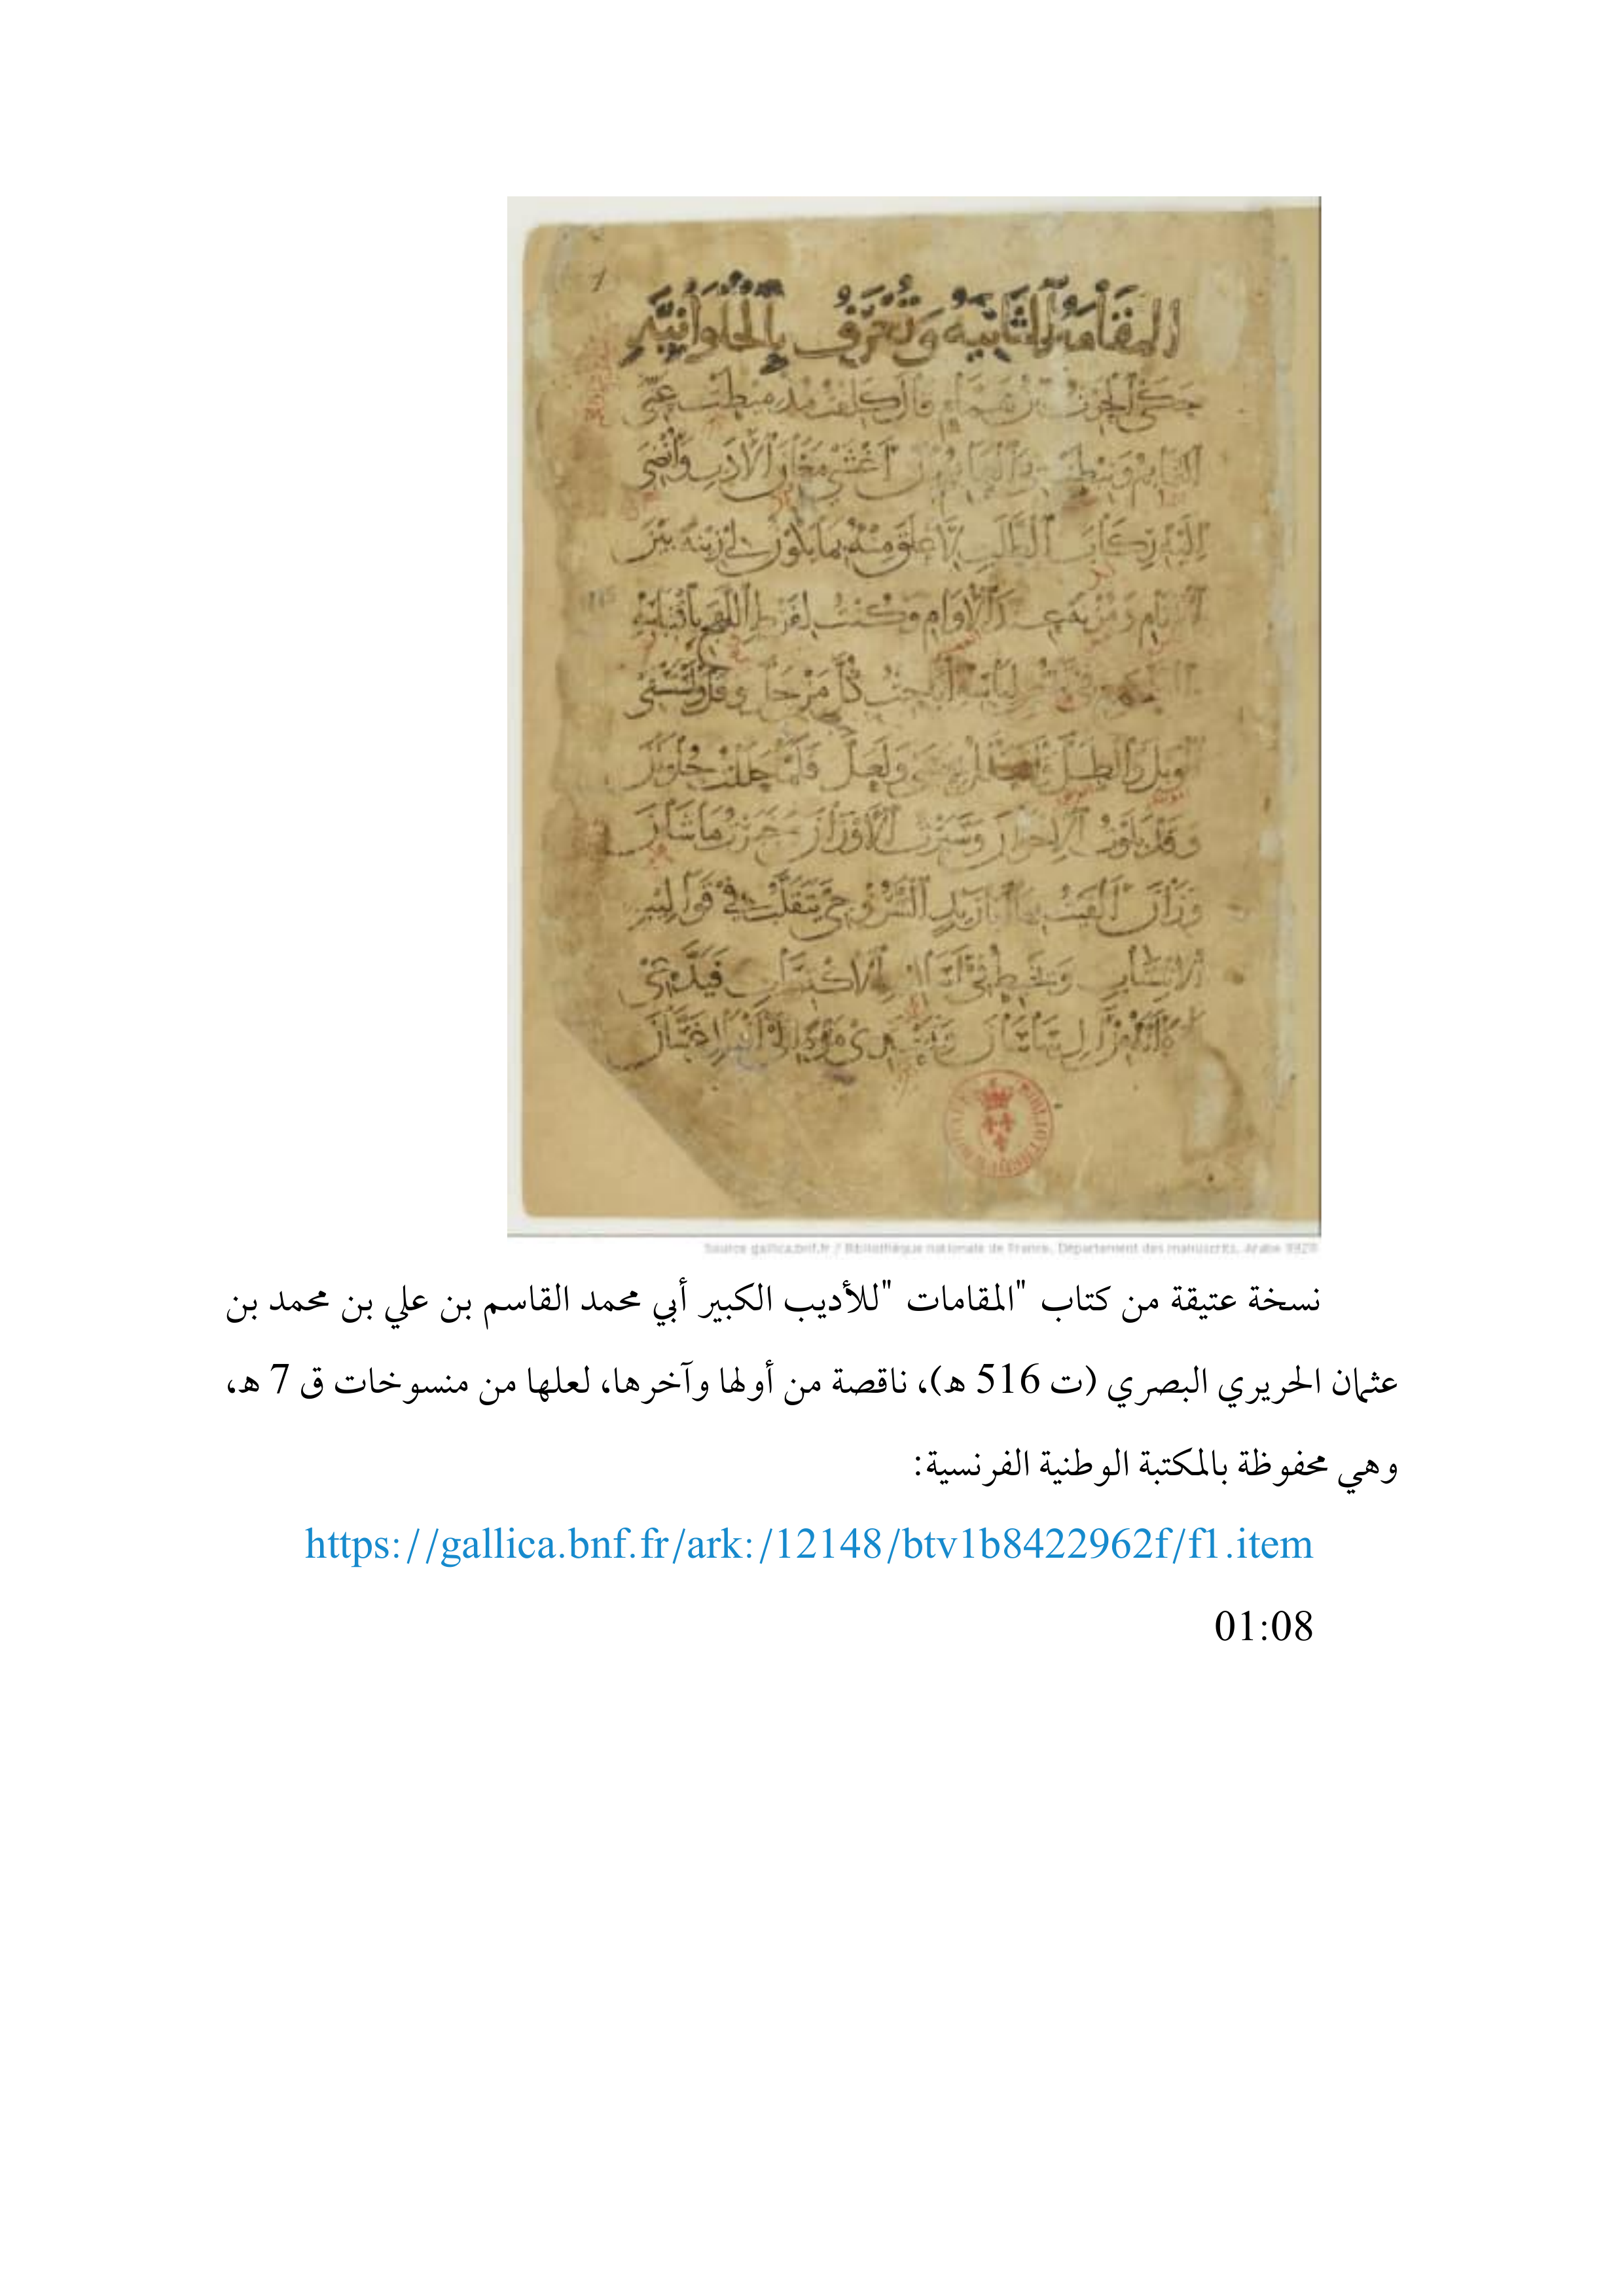 المقامه الثانيه وتعرف بالحلوانيه
حكى الحرث بن همام قال كلفت مذ ميطت عني
التمايم ونيطت بي العمايم بان اغشى مغان الادب وانضى
اليه ركاب الطلب لاعلق منه بما يكون لي زينه بين
الانام ومزنه عند الاوام وكنت لفرط اللهج باقتباسه
اباحث كل من جل وقل واستسقى
الوبل والطل واتعلل بعسى ولعل فلما حللت حلوان
وقد بلوت الاخوان وسبرت الاوزان وخبرت ما شان
وزان الفيت بها ابا زيد السروجي يتقلب في قواليب
الانتساب ويخبط في اساليب الاكتساب فيدعي
Source gallica.bnf.fr / Bibliothèque nationale de France, Département des manuscrits, Arabe
نسخة عتيقة من كتاب "المقامات "للأديب الكبير أبي محمد القاسم بن علي بن محمد بن
عثمان الحريري البصري (ت 516 هـ)، ناقصة من أولها وآخرها، لعلها من منسوخات ق 7 هـ،
وهي محفوظة بالمكتبة الوطنية الفرنسية:
https://gallica.bnf.fr/ark:/12148/btv1b8422962f/f1.item
01:08